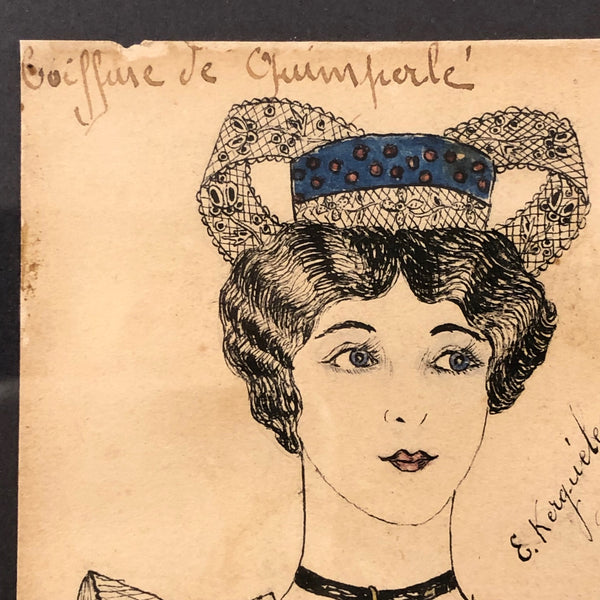 Coiffure de Quimperlé
E. Kerquéle